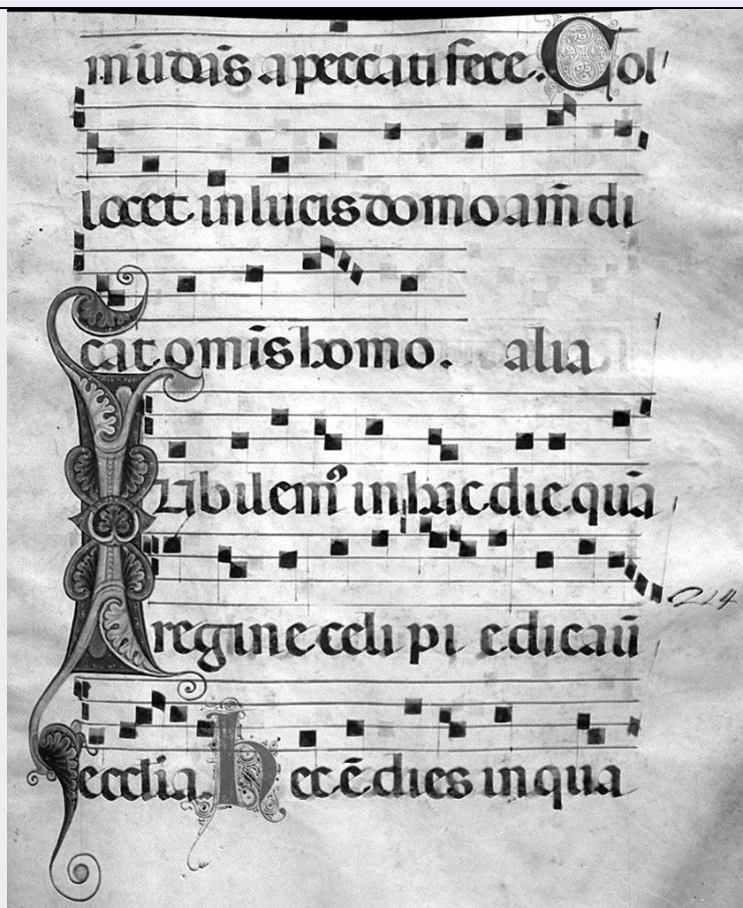 mūdās a peccati fece. Col
locet in lucis domo am̄ di
cat omīs homo. alia
Iubilem' in hac die quā
regine celi pi e dicaū
ecclīa. hec ē dies in qua
214